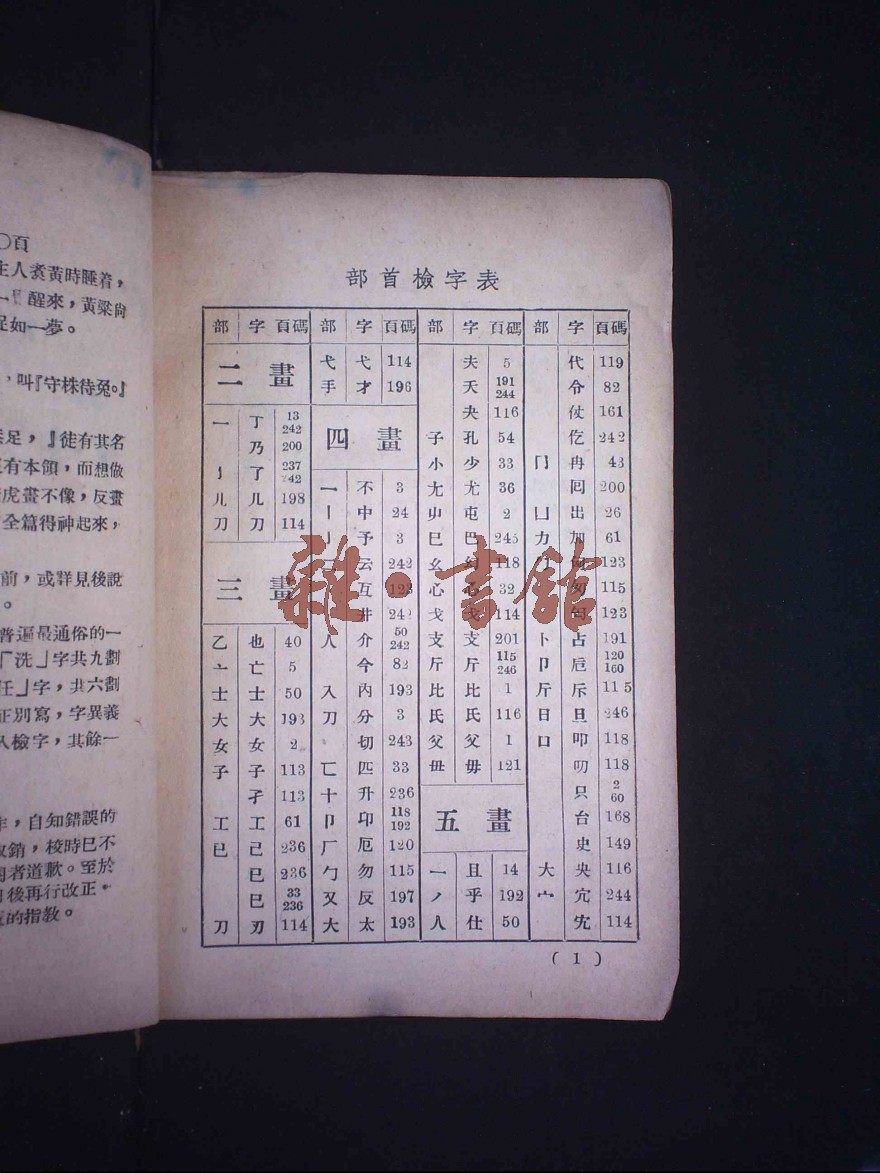 〇頁
主人煮黃時睡着，
醒來，黃粱尙
如一夢。
，叫『守株待兔。』
足，『徒有其名
有本領，而想做
虎畫不像，反畫
全篇得神起來，
前，或詳見後說
。
普遍最通俗的一
「洗」字共九劃
任」字，共六劃
正別寫，字異義
入檢字，其餘一
，自知錯誤的
銷，校時已不
者道歉。至於
後再行改正。
的指教。
部首檢字表
部 字 頁碼 部 字 頁碼 部 字 頁碼 部 字 頁碼
二畫
一 丁 13 242
乃 200
亅 了 237 242
儿 儿 198
刀 刀 114
三畫
乙 也 40
亠 亡 5
士 士 50
大 大 193
女 女 2
子 子 113
孑 113
工 工 61
已 己 236
已 236
巳 33 236
刀 刃 114
弋 弋 114
手 才 196
四畫
一 不 3
丨 中 24
亅 予 3
云 242
互 123
井 242
人 介 50 242
今 82
入 內 193
刀 分 3
切 243
匸 匹 33
十 升 236
卩 卬 118 192
厂 厄 120
勹 勿 115
又 反 197
大 太 193
夫 5
夭 191 244
夬 116
子 孔 54
小 少 33
尢 尤 36
屮 屯 2
巳 巴 245
幺 幻 118
心 心 32
戈 戈 114
支 支 201
斤 斤 115 246
比 比 1
氏 氏 116
父 父 1
毋 毋 121
五畫
一 且 14
丿 乎 192
人 仕 50
代 119
令 82
仗 161
仡 242
冂 冉 43
囘 200
凵 出 26
力 加 61
123
匆 115
匄 123
卜 占 191
卩 卮 120 160
斤 斥 115
日 旦 246
口 叩 118
叨 118
只 2 60
台 168
史 149
大 央 116
宀 宂 244
宄 114
( 1 )
雜·書館